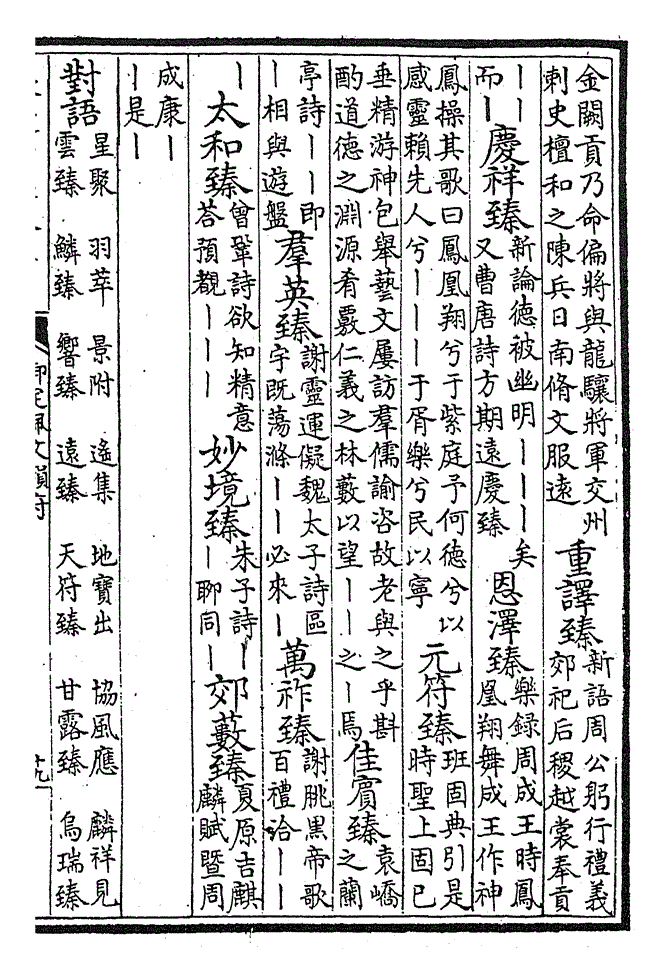 金闕貢乃命偏將與龍驤將軍交州
刺史檀和之陳兵日南脩文服遠
重譯臻
新語周公躬行禮義
郊祀后稷越裳奉貢
｜｜
而｜
慶祥臻
新論德被幽明｜｜｜矣
又曹唐詩方期遠慶臻
恩澤臻
樂録周成王時鳳
凰翔舞成王作神
鳳操其歌曰鳳凰翔兮于紫庭予何德兮以
感靈賴先人兮｜｜｜于胥樂兮民以寧
元符臻
班固典引是
時聖上固已
垂精游神包舉藝文屢訪羣儒諭咨故老與之乎斟
酌道德之淵源肴覈仁義之林藪以望｜｜之｜焉
佳賓臻
袁嶠
之蘭
亭詩｜｜即
｜相與遊盤
羣英臻
謝靈運儗魏太子詩區
宇既蕩滌｜｜必來｜
萬祚臻
謝朓黒帝歌
百禮洽｜｜
｜
太和臻
曾鞏詩欲知精意
荅預覩｜｜｜
妙境臻
朱子詩｜
｜聊同｜
郊藪臻
夏原吉麒
麟賦暨周
成康｜
｜是｜
對語
星聚 羽萃 景附 遙集 地寶出 協風應 麟祥見
雲臻 鱗臻 響臻 遠臻 天符臻 甘露臻 烏瑞臻
御定佩文韻府
十九